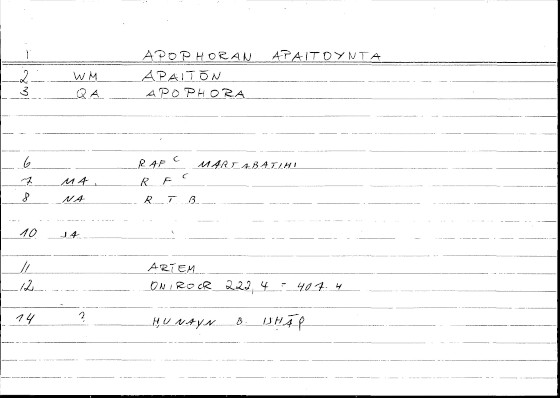 1 APOPHORAN APAITOYNTA
2 WM APAITŌN
3 QA APOPHORA
6 RAFC MARTABATIHI
7 MA. R FC
8 NA R T B
10 JA
11 ARTEM
12 ONIROCR 222,4 = 407.4
14 ? ḤUNAYN B ISḤĀQ